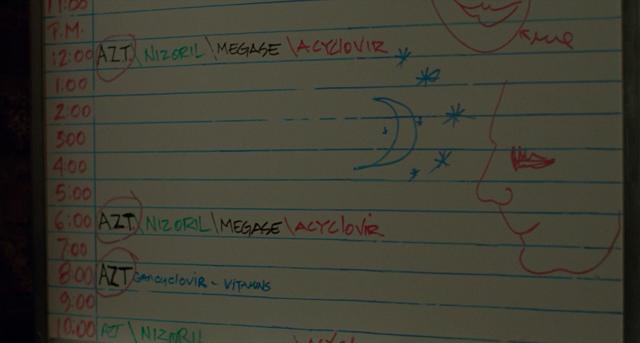 11:00
P.M.
me
12:00 AZT \ NIZORIL \ MEGASE \ ACYCLOVIR
1:00
2:00
3:00
4:00
5:00
6:00 AZT \ NIZORIL \ MEGASE \ ACYCLOVIR
7:00
8:00 AZT GANCYCLOVIR - VITAMINS
9:00
10:00 AZT \ NIZORIL